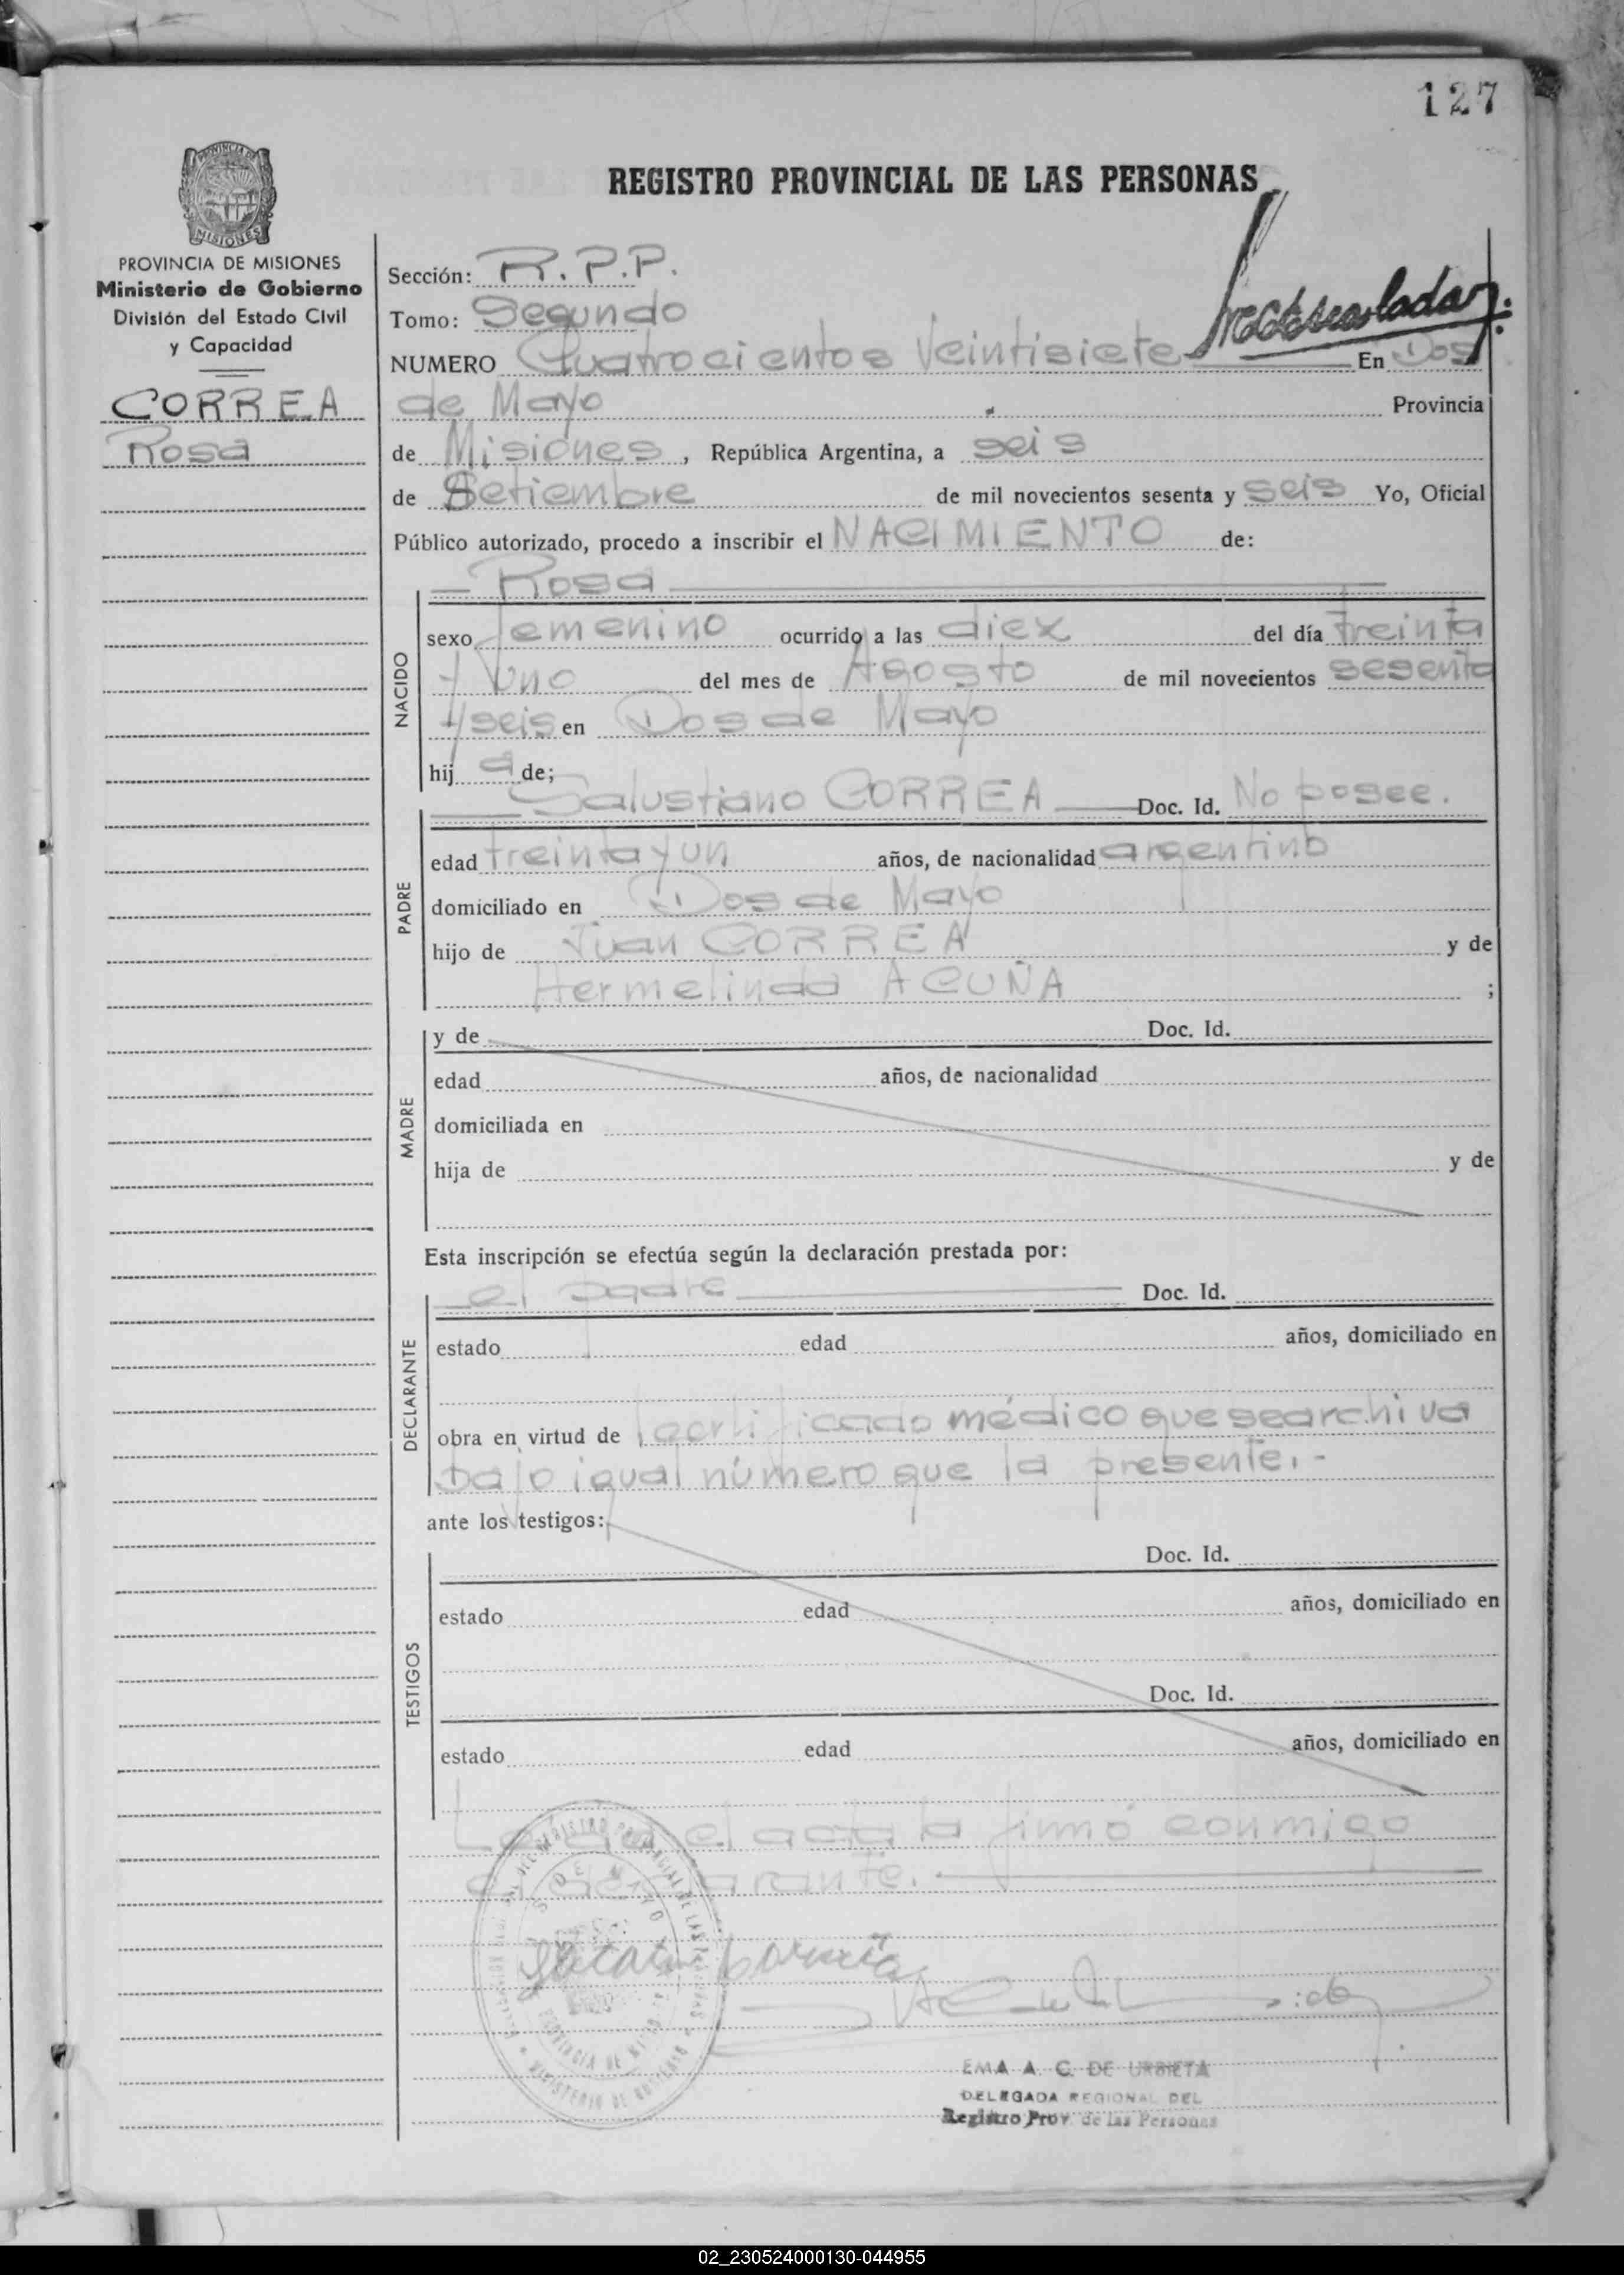 127
REGISTRO PROVINCIAL DE LAS PERSONAS
PROVINCIA DE MISIONES
Ministerio de Gobierno
División del Estado Civil
y Capacidad
CORREA
Rosa
Sección: R.P.P.
Tomo: Segundo
NUMERO Cuatrocientos Veintisiete En Dos
de Mayo Provincia
de Misiones, República Argentina, a seis
de Setiembre de mil novecientos sesenta y seis Yo, Oficial
Público autorizado, procedo a inscribir el NACIMIENTO de:
Rosa
NACIDO
sexo femenino ocurrido a las diex del día treinta
y uno del mes de Agosto de mil novecientos sesenta
y seis en Dos de Mayo
hij a de;
Salustiano CORREA Doc. Id. No posee.
PADRE
edad treinta y un años, de nacionalidad argentino
domiciliado en Dos de Mayo
hijo de Juan CORREA y de
Hermelinda ACUÑA ;
MADRE
y de Doc. Id.
edad años, de nacionalidad
domiciliada en
hija de y de
Esta inscripción se efectúa según la declaración prestada por:
el padre Doc. Id.
DECLARANTE
estado edad años, domiciliado en
obra en virtud de certificado médico que se archiva
bajo igual número que la presente.-
ante los testigos:
TESTIGOS
Doc. Id.
estado edad años, domiciliado en
Doc. Id.
estado edad años, domiciliado en
Leida el acta la firmó conmigo
el declarante.
EMA A. C. DE URBIETA
DELEGADA REGIONAL DEL
Registro Prov. de las Personas
02_230524000130-044955